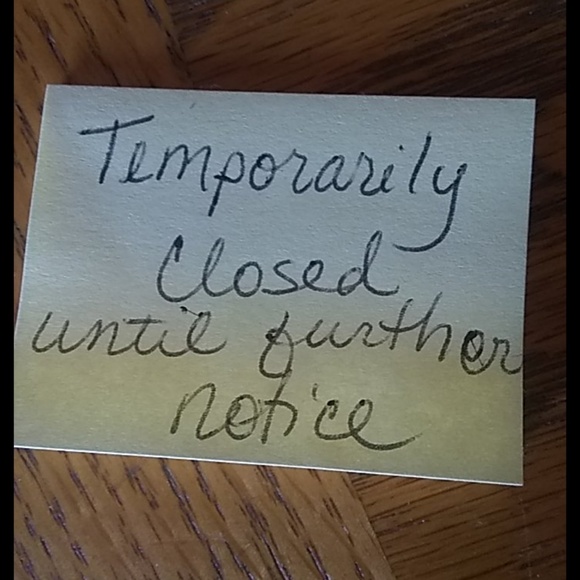 Temporarily
Closed
until further
notice